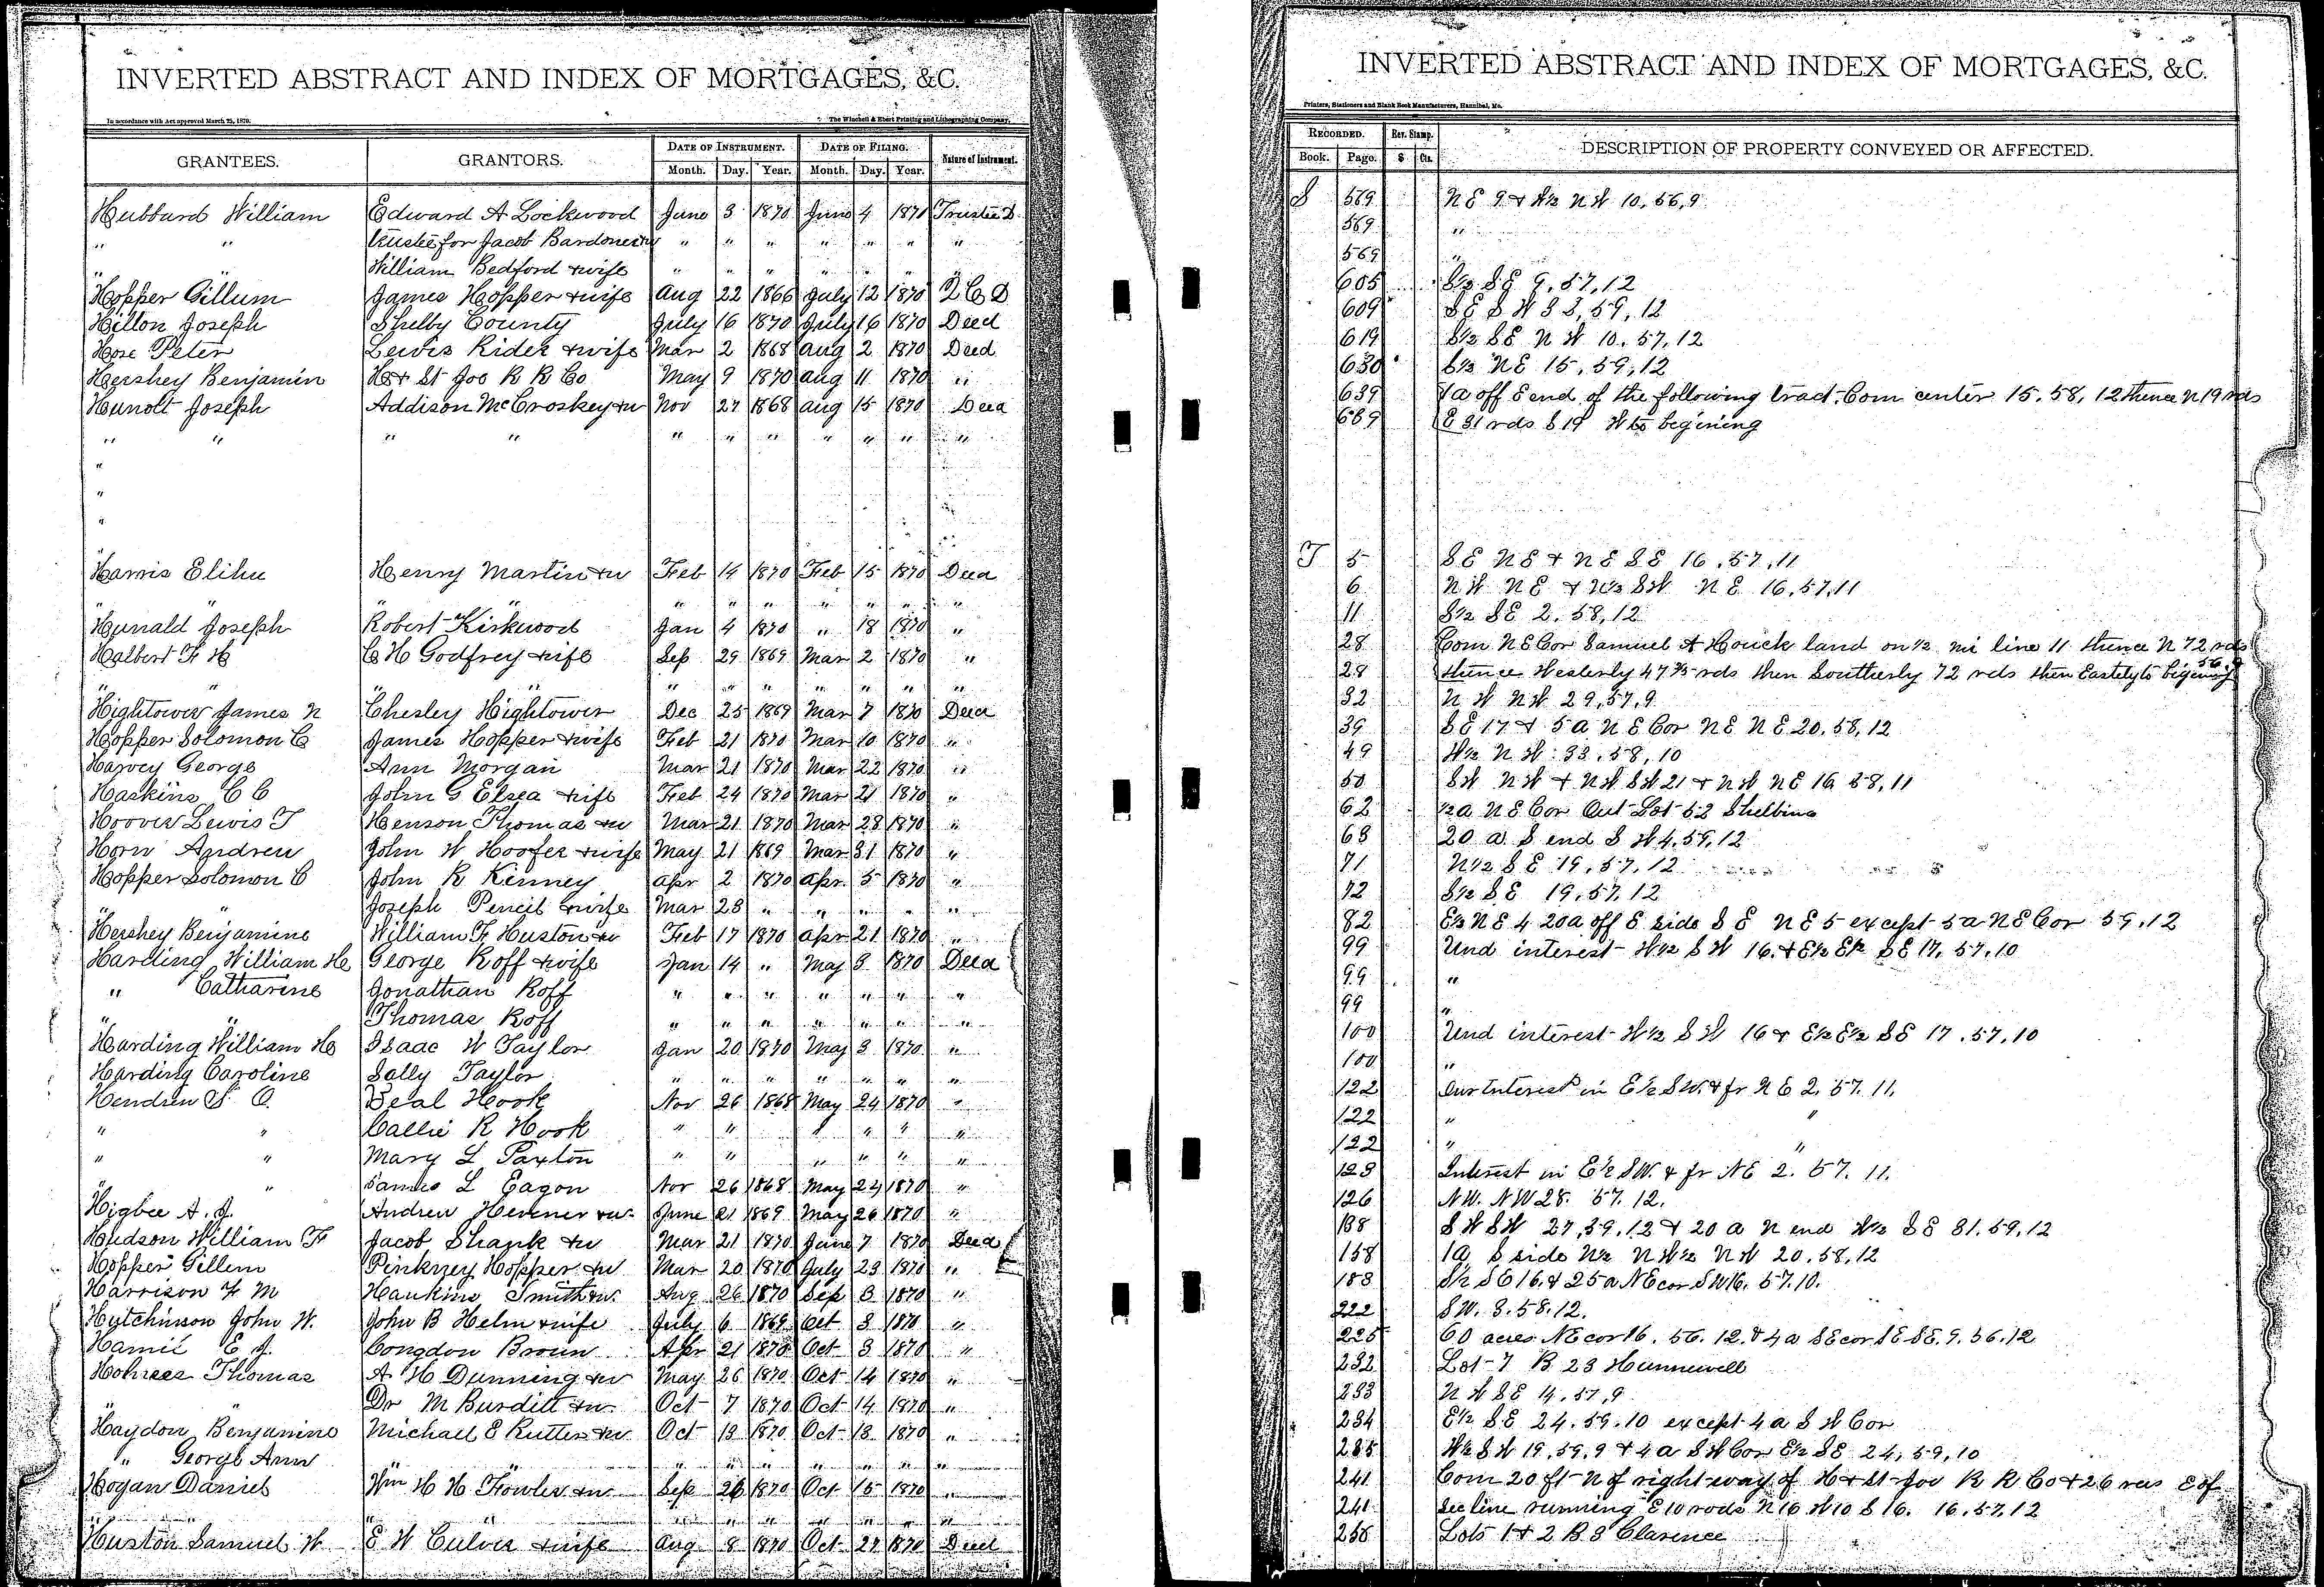 INVERTED ABSTRACT AND INDEX OF MORTGAGES, &C.
In accordance with Act approved March 25, 1870. The Winchell & Ebert Printing and Lithographing Company,
GRANTEES. GRANTORS. DATE OF INSTRUMENT. DATE OF FILING. Nature of Instrument.
Month. Day. Year. Month. Day. Year.
Hubbard William Edward A Lockwood June 3 1870 June 4 1870 Trustee D
" " trustee for Jacob " " " " " " "
" " William Bedford & wife " " " " " " "
Hopper Gillum James Hopper & wife Aug 22 1866 July 12 1870 Q C D
Hillon Joseph Shelby County July 16 1870 July 16 1870 Deed
Hose Peter Lewis Rider & wife Mar 2 1868 Aug 2 1870 Deed
Hershey Benjamin H & St Joo R R Co May 9 1870 Aug 11 1870 "
Hunolt Joseph Addison McCroskey & w Nov 27 1868 Aug 15 1870 Deed
" " " " " " " " " " "
"
"
"
Harris Elihu Henry Martin & w Feb 14 1870 Feb 15 1870 Deed
" " " " " " " " " " "
Hunald Joseph Robert Kirkwood Jan 4 1870 " 18 1870 "
Halbert F H C H Godfrey & wife Sep 29 1869 Mar 2 1870 "
" " " " " " " " " "
Hightower James N Chesley Hightower Dec 25 1869 Mar 7 1870 Deed
Hopper Solomon C James Hopper & wife Feb 21 1870 Mar 10 1870 "
Harvey George Ann Morgan Mar 21 1870 Mar 22 1870 "
Haskins C C John G Elsea & wife Feb 24 1870 Mar 21 1870 "
Hoover Lewis T Henson Thomas & w Mar 21 1870 Mar 28 1870 "
Horn Andrew John W Hoofer & wife May 21 1869 Mar 31 1870 "
Hopper Solomon C John R Kinney Apr 2 1870 Apr 5 1870 "
" " Joseph Pencil & wife Mar 28 " " " " "
Hershey Benjamine William F Huston & w Feb 17 1870 Apr 21 1870 "
Harding William H George Roff & wife Jan 14 " May 3 1870 Deed
" Catharine Jonathan Roff " " " " " " "
" " Thomas Roff " " " " " " "
Harding William H Isaac W Taylor Jan 20 1870 May 3 1870 "
Harding Caroline Sally Taylor " " " " " " "
Hendren S. O. Beal Hook Nov 26 1868 May 24 1870 "
" " Callie R Hook " " " " " "
" " Mary L Paxton " " " " " "
" " James L Eagon Nov 26 1868 May 24 1870 "
Higbee A. J. Andrew Hevener & w. June 21 1869 May 26 1870 "
Hudson William F Jacob Shank & w Mar 21 1870 June 7 1870 Deed
Hopper Gillem Pinkney Hopper & w Mar 20 1870 July 23 1870 "
Harrison F M Hankins Smith & w. Aug 26 1870 Sep 3 1870 "
Hutchinson John W. John B Helm & wife July 6 1869 Oct 3 1870 "
Hamil E J. Congdon Brown Apr 21 1870 Oct 3 1870 "
Hohrees Thomas A H Dunning & w May 26 1870 Oct 14 1870 "
" " Dr M Burditt & w Oct 7 1870 Oct 14 1870 "
Haydon Benjamine Michael E Rutter & w Oct 13 1870 Oct 13 1870 "
" George Ann " " " " " " " "
Hogan Daniel Wm H H Fowler & w Sep 26 1870 Oct 15 1870 "
" " " " " " " " " "
Huston Samuel W. E W Culver & wife Aug 8 1870 Oct 27 1870 Deed
INVERTED ABSTRACT AND INDEX OF MORTGAGES, &C.
Printers, Stationers and Blank Book Manufacturers, Hannibal, Mo.
RECORDED. Rev. Stamp. DESCRIPTION OF PROPERTY CONVEYED OR AFFECTED.
Book. Page. $ Cts.
S 569 N E 9 & W½ N W 10, 56, 9
569 "
569 "
605 S½ SE 9, 57, 12
609 S E S W 33, 59, 12
619 S½ SE N W 10, 57, 12
630 S½ NE 15, 59, 12
639 1a off E end of the following tract. Com center 15, 58, 12 thence N 19 rds
639 E 31 rds S 19 W to begining
T 5 S E N E & N E S E 16, 57, 11
6 N W N E & W½ SW N E 16, 57, 11
11 S½ SE 2, 58, 12
28 Com N E Cor Samuel A Houck land on ½ mi line 11 thence N 72 rds
28 thence Westerly 47⅗ rds then Southerly 72 rds then Easterly to begining
32 N W NW 29, 57, 9
39 S E 17 & 5 a N E Cor N E N E 20, 58, 12
49 W½ N W 33, 58, 10
50 SW NW & NW SW 21 & N W N E 16, 58, 11
62 ½ a N E Cor Out Lot 52 Shelbina
68 20 a S end S W 4, 59, 12
71 N½ S E 19, 57, 12
72 S½ S E 19, 57, 12
82 E½ N E 4 20a off E side S E N E 5 except 5 a N E Cor 59, 12
99 Und interest W½ S W 16 & E½ E½ S E 17, 57, 10
99 "
99 "
100 Und interest W½ S W 16 & E½ E½ SE 17, 57, 10
100 "
122 Our Interest in E½ S W. & fr N E 2. 57. 11.
122 " "
122 " "
123 Interest in E½ SW. & fr NE 2. 57. 11.
126 NW. NW 28. 57. 12.
138 S W SW 27, 59, 12 & 20 a N end W½ S E 31, 59, 12
158 1a S side W½ N W½ N W 20, 58, 12
183 S½ SE 16 & 25a NE cor SW 16. 57. 10.
222 SW. 3. 58. 12.
225 60 acres NE cor 16. 56. 12. & 4 a SE cor SE SE. 9. 56. 12
232 Lot 7 B 23 Hunnewell
233 N W SE 14, 57, 9
234 E½ S E 24, 59, 10 except 4 a S W Cor
235 W½ S W 19, 59, 9 & 4 a S W Cor E½ SE 24, 59, 10
241 Com 20 ft N of right way of H & St Joo R R Co & 26 rds E of
241 Sec line running E 10 rods N 16 W 10 S 16. 16, 57, 12
256 Lots 1 & 2 B 3 Clarence